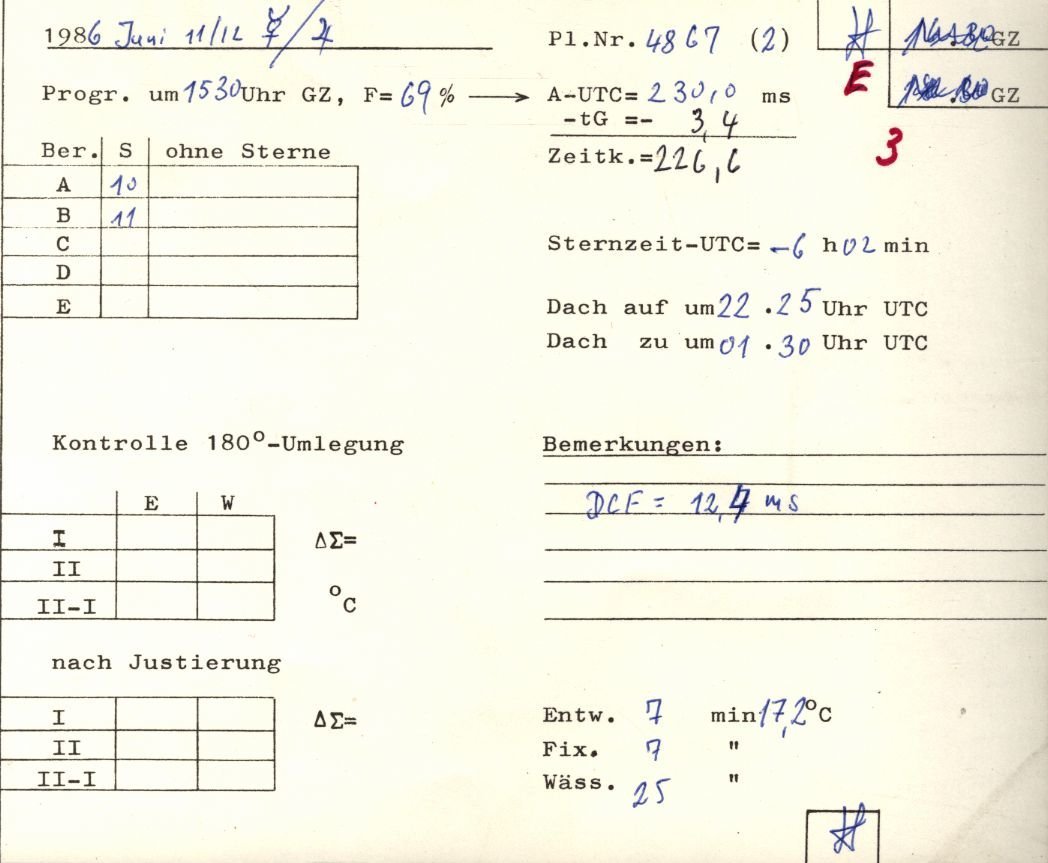 1986 Juni 11/12 ☿/♃
Pl.Nr. 4867 (2)
GZ
Progr. um 1530 Uhr GZ, F= 69 % → A-UTC= 230,0 ms
E
GZ
-tG =- 3,4
Zeitk.= 226,6
3
Ber. S ohne Sterne
A 10
B 11
C
D
E
Sternzeit-UTC= -6 h 02 min
Dach auf um 22 .25 Uhr UTC
Dach zu um 01 .30 Uhr UTC
Kontrolle 180°-Umlegung
E W
I ΔΣ=
II
II-I °C
Bemerkungen:
DCF = 12,4 ms
nach Justierung
I ΔΣ=
II
II-I
Entw. 7 min 17,2°C
Fix. 7 "
Wäss. 25 "